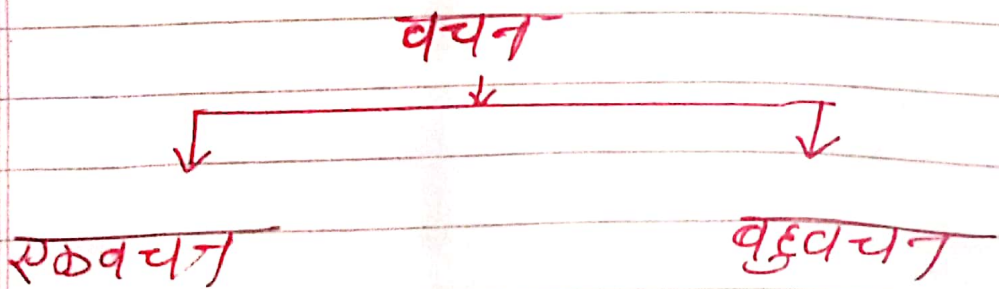 वचन
एकवचन बहुवचन